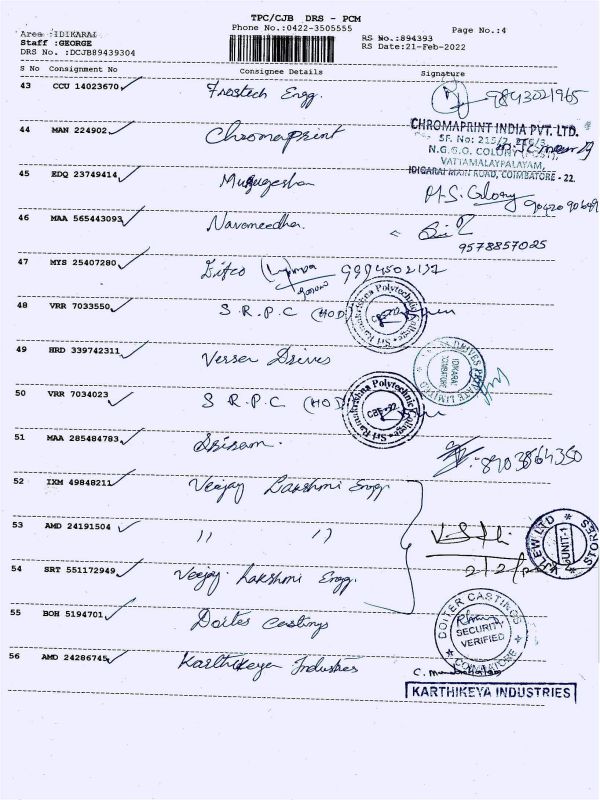 TPC/CJB DRS - PCM
Phone No.:0422-3505555
Page No.:4
Area :IDIKARAI
Staff :GEORGE
DRS No. :DCJB89439304
RS No.:894393
RS Date:21-Feb-2022
S No Consignment No Consignee Details Signature
43 CCU 14023670 Frostech Engg. 9843021965
44 MAN 224902 Chromaprint
CHROMAPRINT INDIA PVT. LTD.
SF. No: 215/2,
N.G.G.O. COLONY (POST),
VATTAMALAYPALAYAM,
IDIGARAI MAIN ROAD, COIMBATORE - 22.
45 EDQ 23749414 Murugeshan M.S. Glory
46 MAA 565443093 Navaneedha 9578857025
47 MYS 25407280
48 VRR 7033550 S.R.P.C (HOD)
Sri Ramakrishna Polytechnic College
49 HRD 339742311 Versa Drives
DRIVES PRIVATE LIMITED
IDIKARAI
COIMBATORE
50 VRR 7034023 S R.P.C (HOD)
Sri Ramakrishna Polytechnic College
CBE-22
51 MAA 285484783 Sriram. 8903864350
52 IXM 49848211 Veejay Lakshmi Engg
53 AMD 24191504 " "
STORES
UNIT-1
54 SRT 551172949 Veejay Lakshmi Engg.
55 BOH 5194701 Doiter Castings
DOITER CASTINGS
SECURITY
VERIFIED
COIMBATORE
56 AMD 24286745 Karthikeya Industries
KARTHIKEYA INDUSTRIES